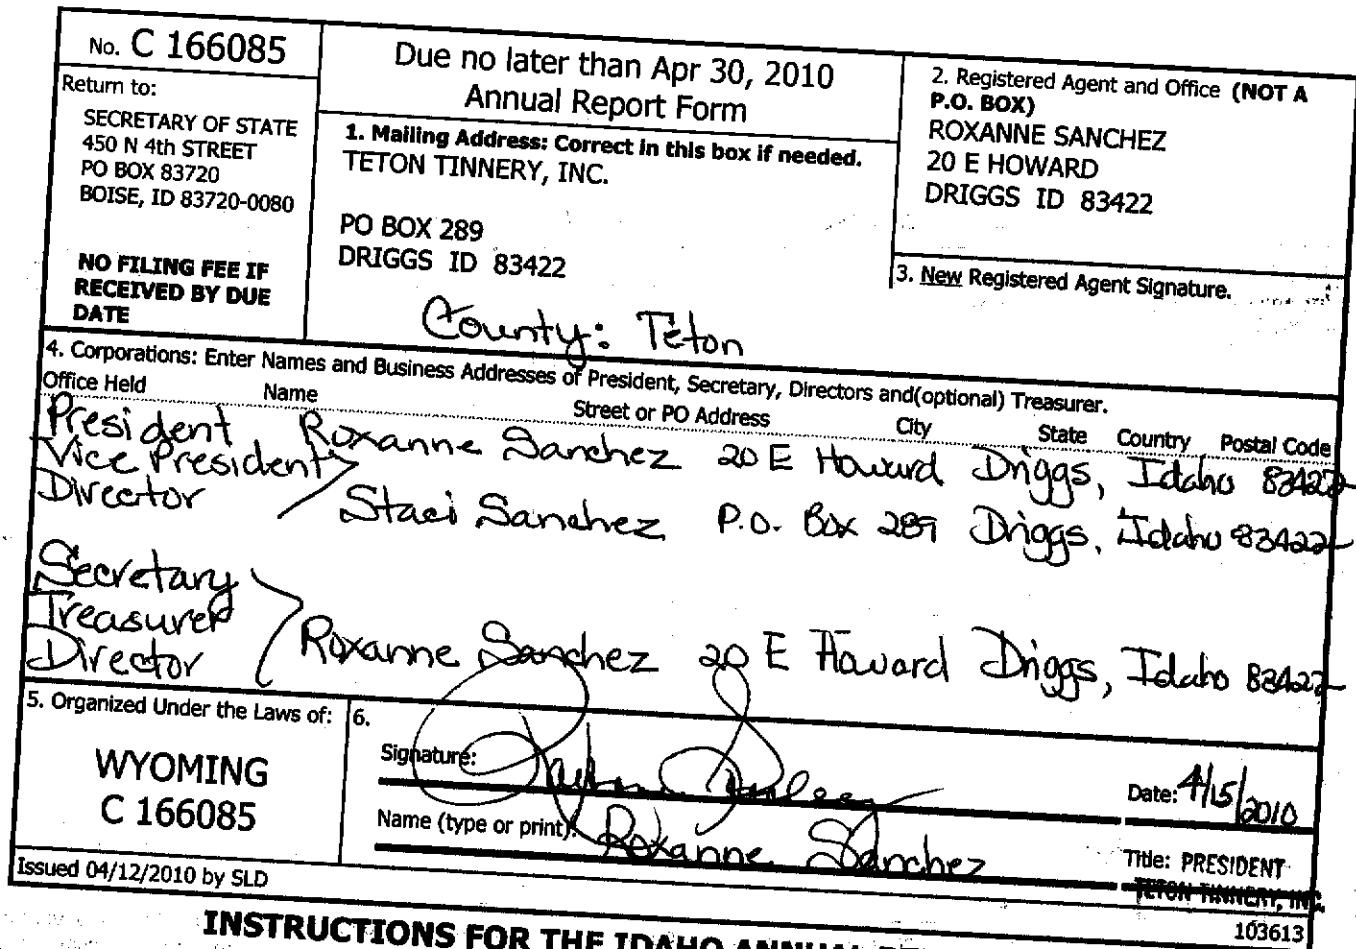 No. C 166085
Return to:
SECRETARY OF STATE
450 N 4th STREET
PO BOX 83720
BOISE, ID 83720-0080
NO FILING FEE IF
RECEIVED BY DUE
DATE
Due no later than Apr 30, 2010
Annual Report Form
1. Mailing Address: Correct in this box if needed.
TETON TINNERY, INC.
PO BOX 289
DRIGGS ID 83422
County: Teton
2. Registered Agent and Office (NOT A
P.O. BOX)
ROXANNE SANCHEZ
20 E HOWARD
DRIGGS ID 83422
3. New Registered Agent Signature.
4. Corporations: Enter Names and Business Addresses of President, Secretary, Directors and(optional) Treasurer.
Office Held Name Street or PO Address City State Country Postal Code
President Roxanne Sanchez 20 E Howard Driggs, Idaho 83422
Vice President
Director Staci Sanchez P.O. Box 289 Driggs, Idaho 83422
Secretary
Treasurer
Director Roxanne Sanchez 20 E Howard Driggs, Idaho 83422
5. Organized Under the Laws of:
WYOMING
C 166085
6.
Signature:
Date: 4/15/2010
Name (type or print): Roxanne Sanchez
Title: PRESIDENT
TETON TINNERY, INC.
Issued 04/12/2010 by SLD
103613
INSTRUCTIONS FOR THE IDAHO ANNUAL